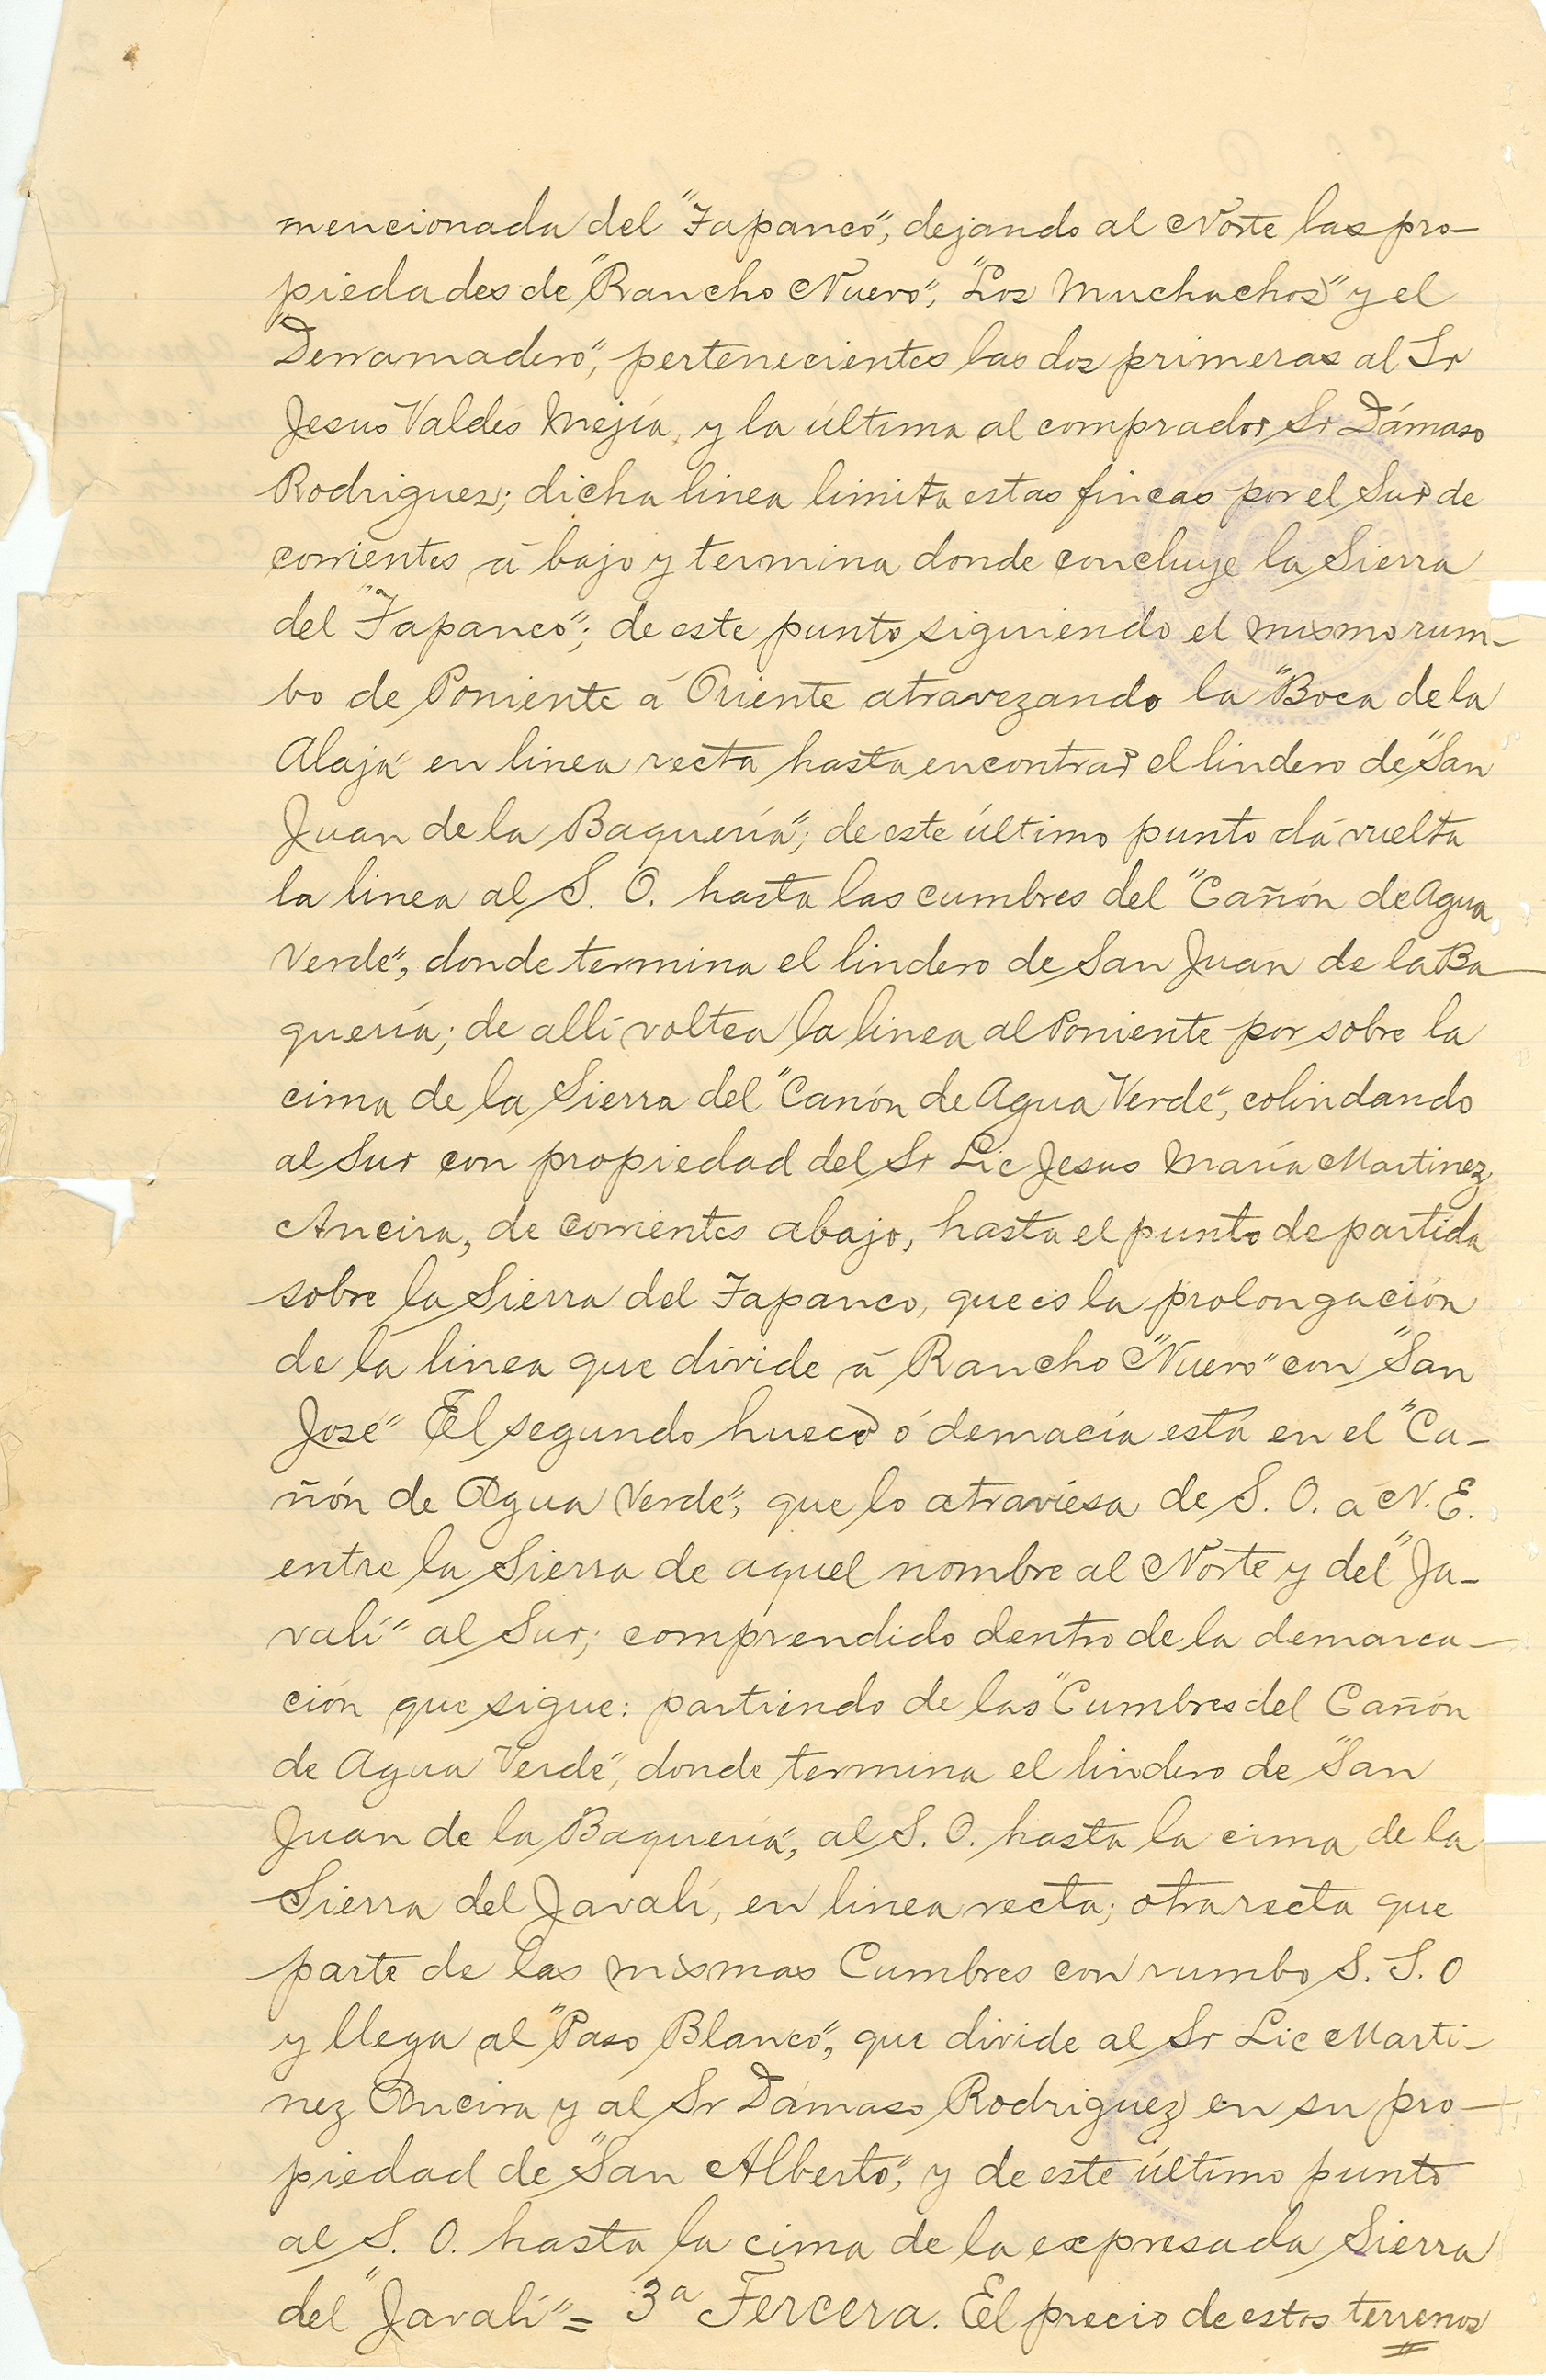 mencionada del "Tapanco", dejando al Norte las pro-
piedades de "Rancho Nuevo", "Los Muchachos" y el
Derramadero", pertenecientes las dos primeras al Sr
Jesus Valdés Mejía, y la última al comprador Sr Dámaso
Rodriguez; dicha linea limita estas fincas por el Sur de
corrientes á bajo y termina donde concluye la Sierra
del "Tapanco"; de este punto siguiendo el mismo rum-
bo de Poniente á Oriente atravezando la "Boca de la
Alaja" en linea recta hasta encontrar el lindero de "San
Juan de la Baquería"; de este último punto dá vuelta
la linea al S. O. hasta las cumbres del "Cañón de Agua
Verde", donde termina el lindero de San Juan de la Ba-
quería; de allí voltea la linea al Poniente por sobre la
cima de la Sierra del "Canón de Agua Verde", colindando
al Sur con propiedad del Sr Lic Jesus María Martinez
Ancira, de corrientes abajo, hasta el punto de partida
sobre la Sierra del Tapanco, que es la prolongación
de la linea que divide á Rancho "Nuevo" con "San
José" El segundo hueco ó demacía está en el "Ca-
ñón de Agua Verde", que lo atraviesa de S. O. á N. E.
entre la Sierra de aquel nombre al Norte y del "Ja-
valí" al Sur; comprendido dentro de la demarca-
ción que sigue: partiendo de las "Cumbres del Cañón
de Agua Verde", donde termina el lindero de "San
Juan de la Baquería", al S. O. hasta la cima de la
Sierra del Javalí, en linea recta; otra recta que
parte de las mismas Cumbres con rumbo S. S. O
y llega al "Paso Blanco", que divide al Sr Lic Marti-
nez Ancira y al Sr Dámaso Rodriguez en su pro-
piedad de "San Alberto", y de este último punto
al S. O. hasta la cima de la expresada Sierra
del "Javalí" = 3ª Tercera. El precio de estos terrenos